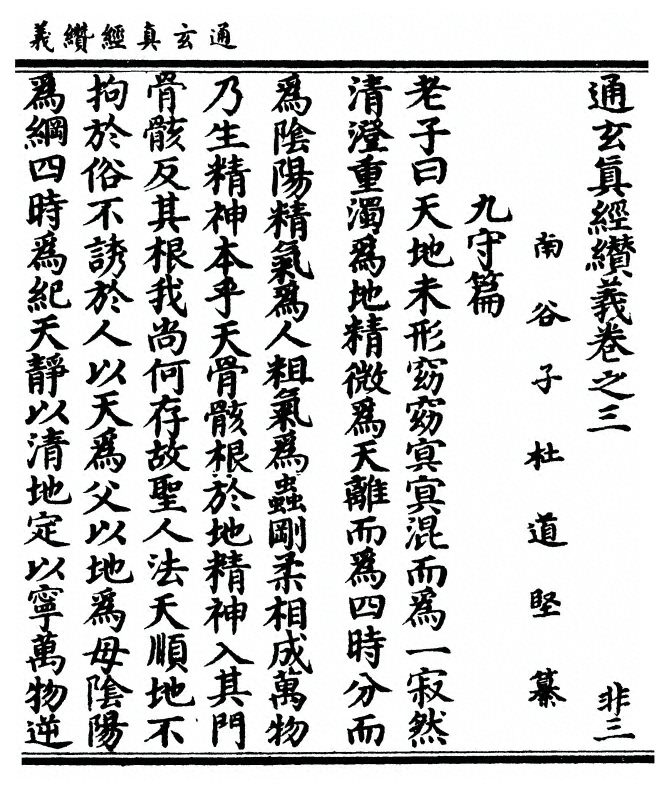 通玄真經纘義
通玄真經纘義卷之三 非三
南谷子杜道堅纂
九守篇
老子曰天地未形窈窈冥冥混而爲一寂然
清澄重濁爲地精微爲天離而爲四時分而
爲陰陽精氣爲人粗氣爲蟲剛柔相成萬物
乃生精神本乎天骨骸根於地精神入其門
骨骸反其根我尚何存故聖人法天順地不
拘於俗不誘於人以天爲父以地爲母陰陽
爲綱四時爲紀天靜以清地定以寧萬物逆